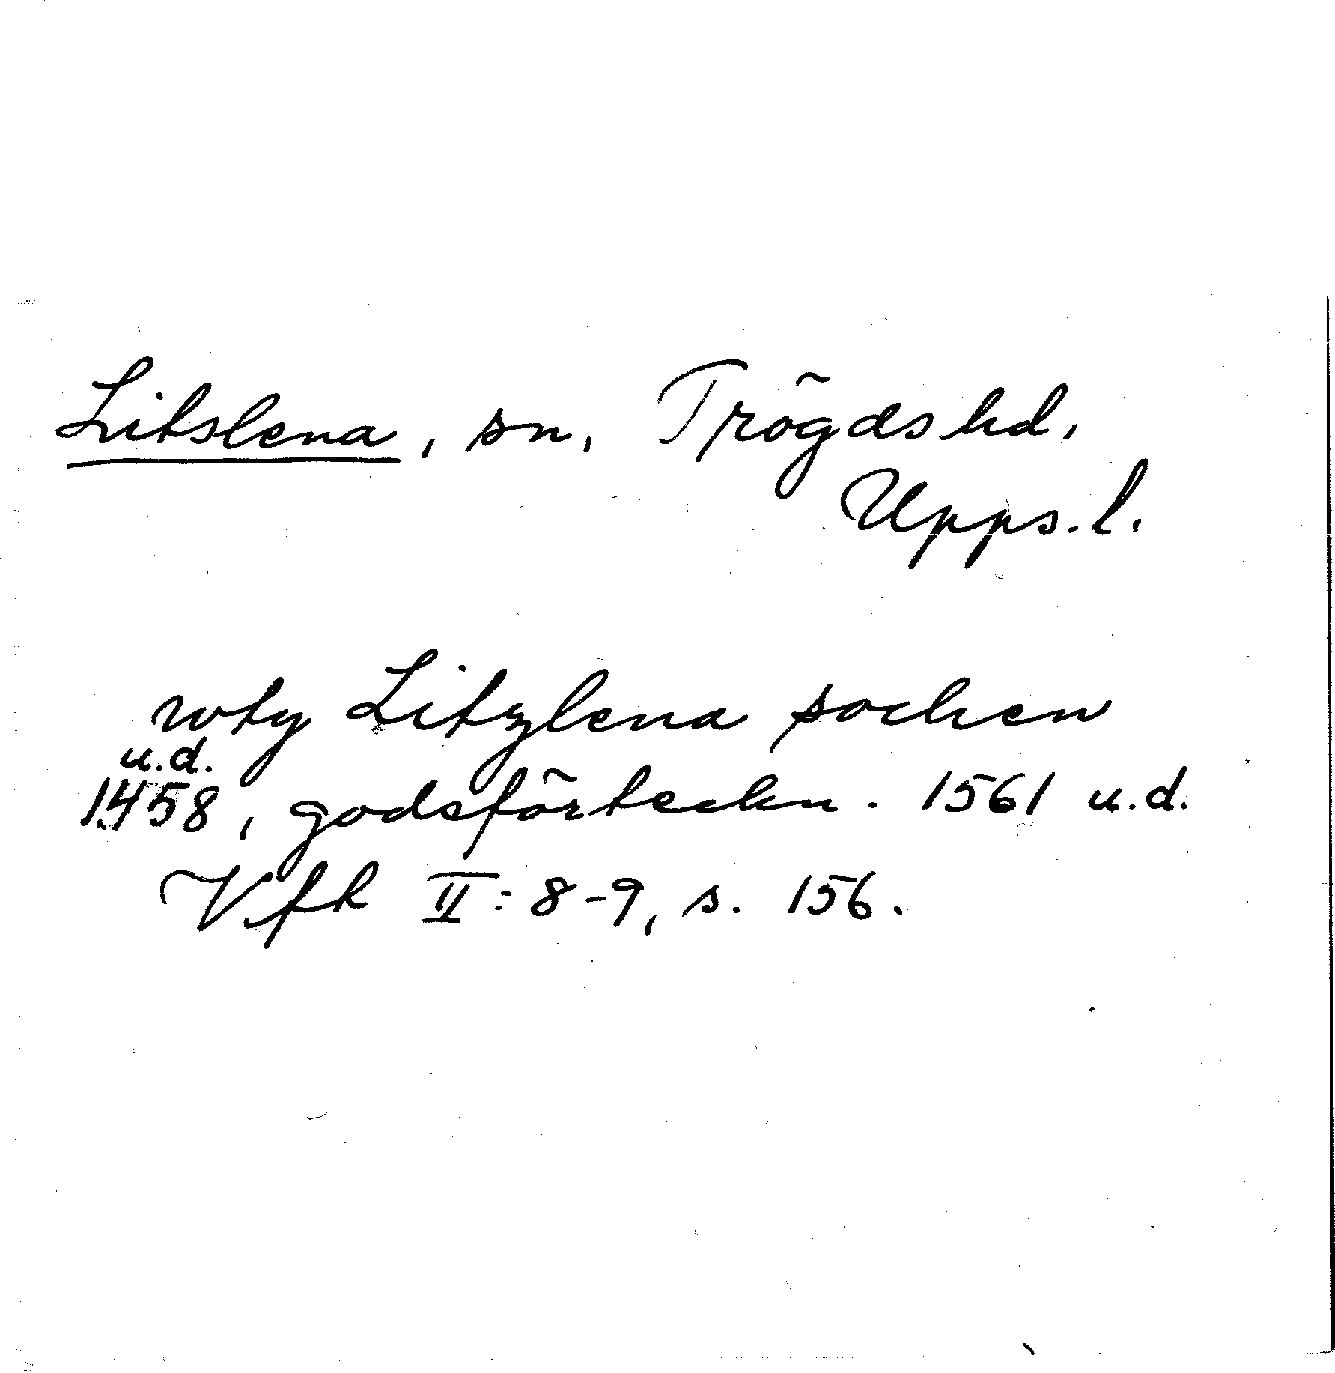 Litslena, sn, Trögds hd,
Upps. l.
wty Litzlena sochen
u.d.
1458, godsförteckn. 1561 u.d.
Vfk II: 8-9, s. 156.